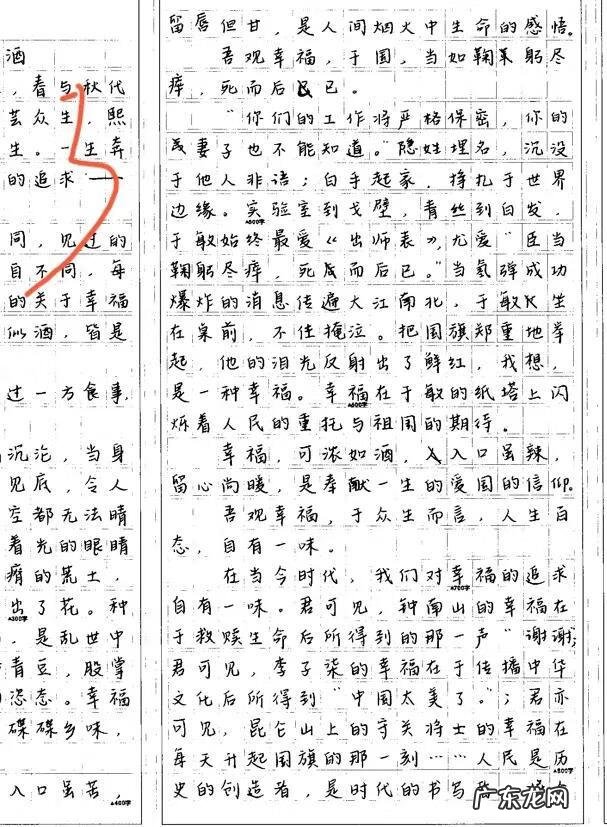 酒
，春与秋代
芸众生，熙
生。一生奔
的追求——
同，见过的
自不同，每
的关于幸福
似酒，皆是
过一方食事，
沉沦，当身
见底，令人
空都无法晴
着光的眼睛
瘠的荒土，
出了花。种
▲300字
，是乱世中
青豆，股掌
恣态。幸福
碟碟乡味，
入口虽苦，
▲400字
留唇但甘，是人间烟火中生命的感悟。
吾观幸福，于国，当如鞠躬尽
瘁，死而后已。
“你们的工作将严格保密，你的
妻子也不能知道。”隐姓埋名，沉没
于他人非语；白手起家，挣扎于世界
边缘。实验室到戈壁，青丝到白发，
▲500字
于敏始终最爱《出师表》，尤爱“臣当
鞠躬尽瘁，死而后已。”当氢弹成功
爆炸的消息传遍大江南北，于敏坐
在桌前，不住掩泣。把国旗郑重地举
起，他的泪光反射出了鲜红，我想，
是一种幸福。幸福在于敏的纸塔上闪
▲600字
烁着人民的重托与祖国的期待。
幸福，可浓如酒，入口虽辣，
留心尚暖，是奉献一生的爱国的信仰。
吾观幸福，于众生而言，人生百
态，自有一味。
在当今时代，我们对幸福的追求
▲700字
自有一味。君可见，钟南山的幸福在
于救赎生命后所得到的那一声“谢谢”；
君可见，李子柒的幸福在于传播中华
文化后所得到“中国太美了。”；君亦
可见，昆仑山上的守关将士的幸福在
每天升起国旗的那一刻……人民是历
▲800字
史的创造者，是时代的书写
广东龙网